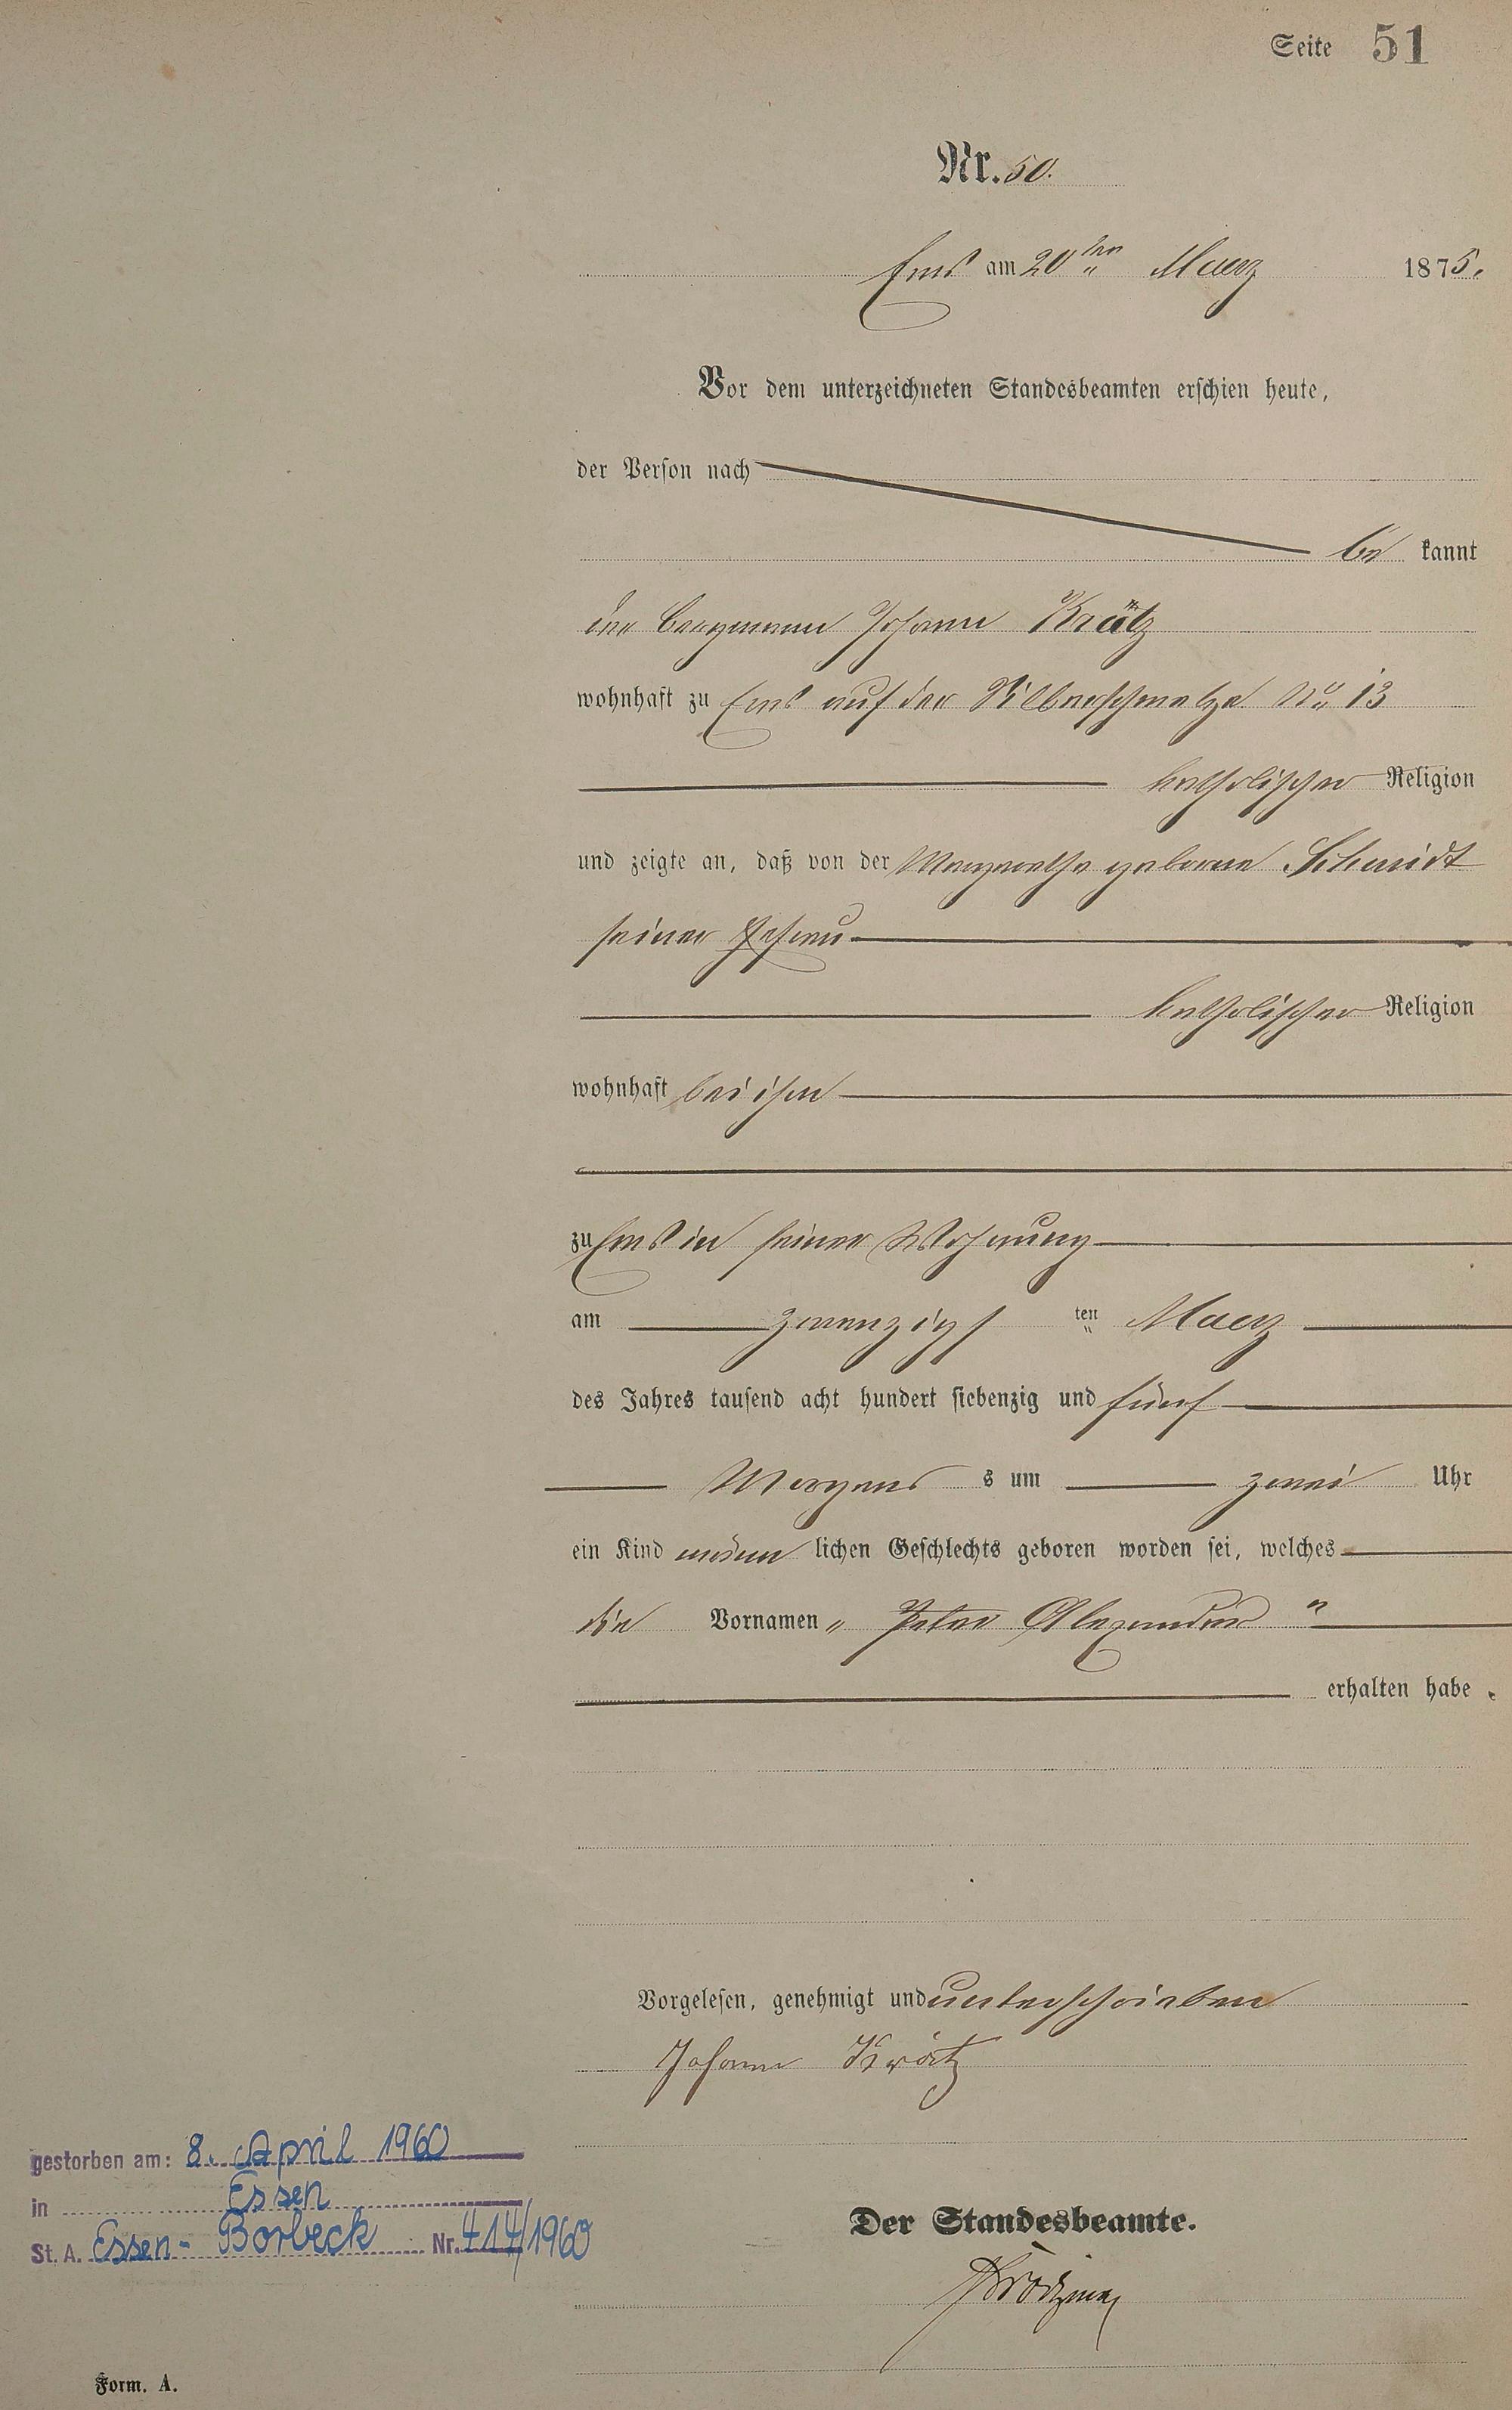 Seite 51
Nr. 50.
Ems am 20ten Maerz 1875.
Vor dem unterzeichneten Standesbeamten erschien heute,
der Person nach
be kannt
der Bergmann Johann Krätz
wohnhaft zu Ems auf der Silberschmelze No 13
katholischer Religion
und zeigte an, daß von der Margarethe geborne Schmidt
seiner Ehefrau
katholischer Religion
wohnhaft bei ihm
zu Ems in seiner Wohnung
am zwanzigs ten Maerz
des Jahres tausend acht hundert siebenzig und fünf
Morgens s um zwei Uhr
ein Kind männ lichen Geschlechts geboren worden sei, welches
die Vornamen „ Peter Alexander "
erhalten habe.
Vorgelesen, genehmigt und unterschrieben
Johann Krätz
gestorben am: 8. April 1960
in Essen
St. A. Essen-Borbeck Nr. 414/1960
Der Standesbeamte.
Form. A.